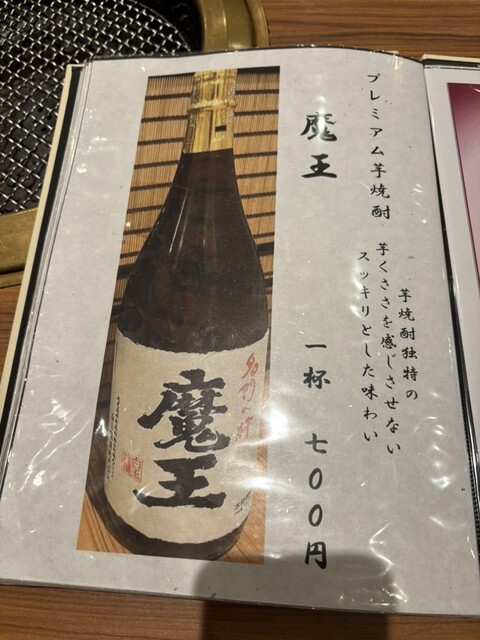 プレミアム芋焼酎
芋焼酎独特の
芋くささを感じさせない
スッキリとした味わい
魔王 一杯 七００円
名門の粋
魔王